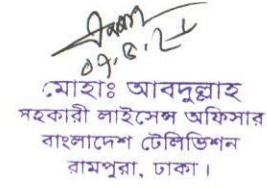 ০৭.৪.২১
মোহাঃ আবদুল্লাহ
সহকারী লাইসেন্স অফিসার
বাংলাদেশ টেলিভিশন
রামপুরা, ঢাকা।